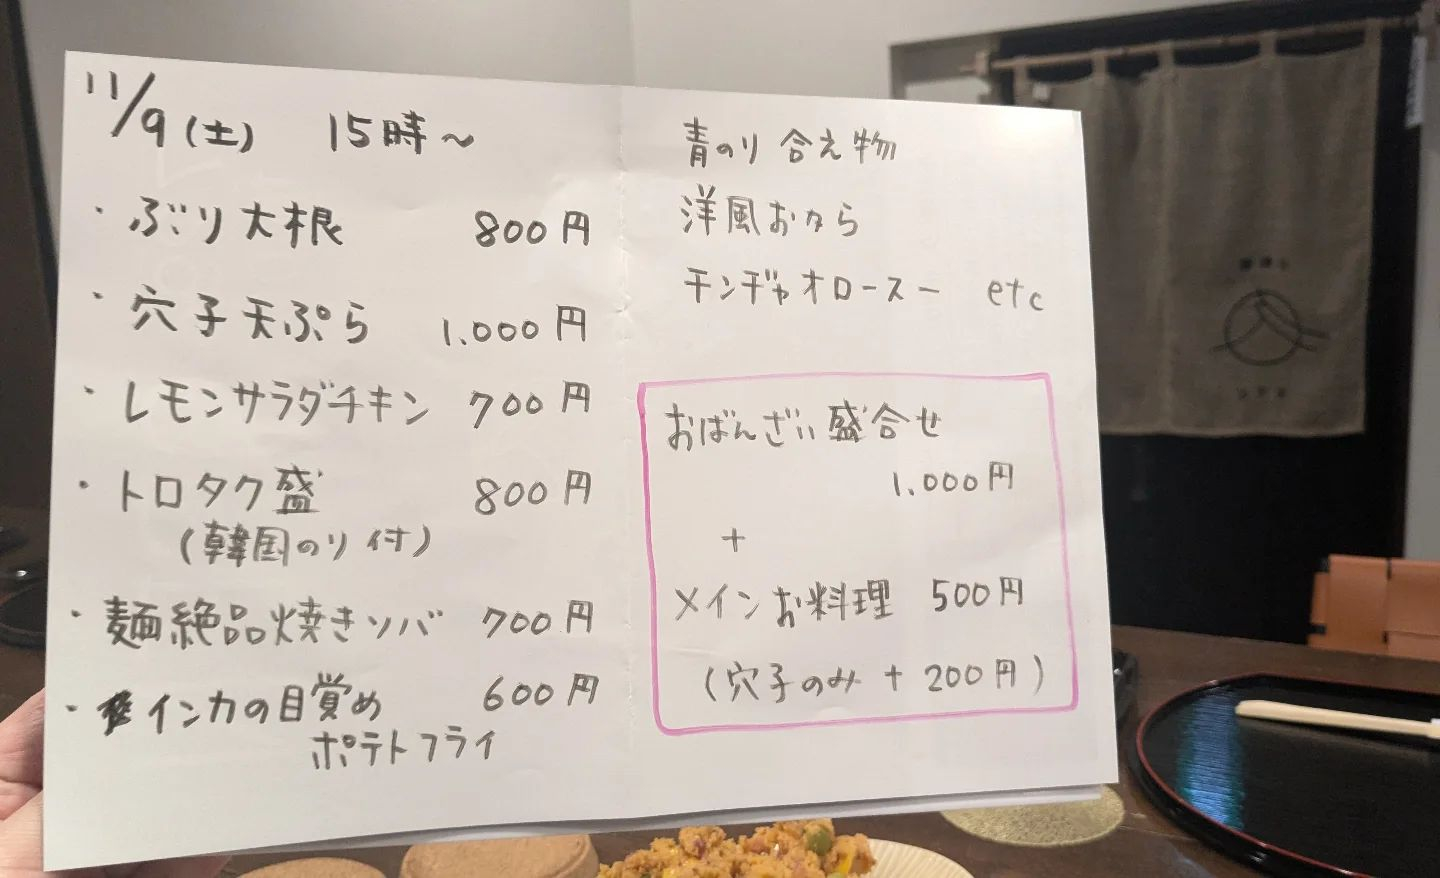 11/9(土) 15時〜
・ぶり大根 800円
・穴子天ぷら 1.000円
・レモンサラダチキン 700円
・トロタク盛 800円
(韓国のり付)
・麺絶品焼きソバ 700円
・インカの目覚め 600円
ポテトフライ
青のり合え物
洋風おから
チンヂャオロースー etc
おばんざい盛合せ
1.000円
+
メインお料理 500円
(穴子のみ + 200円)